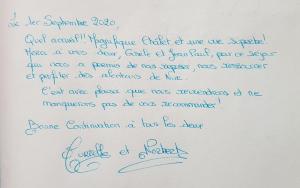 Le 1er Septembre 2020,
Quel accueil!! Magnifique Châlet et une vue superbe!
Merci à vous deux, Gisèle et Jean Paul, par ce séjour
qui nous a permis de nous reposer, nous ressourcer
et profiter des alentours de
C'est avec plaisir que nous reviendrons et ne
manquerons pas de vous recommander!
Bonne Continuation à tous les deux
et